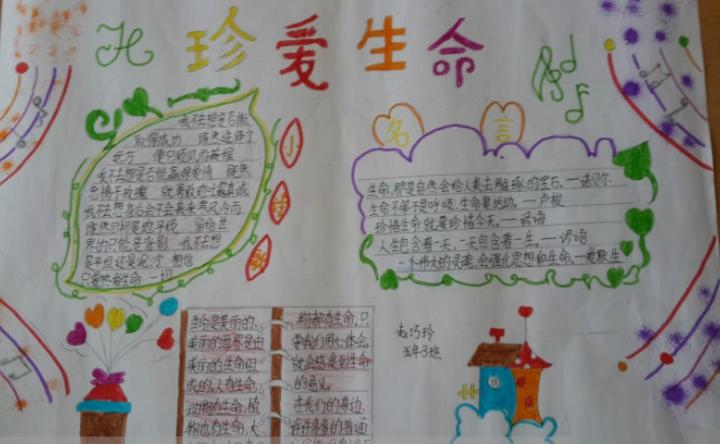 珍爱生命
我不去想是否能
够得成功 既然选择了
远方 便只顾风雨兼程
我不去想是否能赢得爱情 既然
钟情于玫瑰 就勇敢地吐露真诚
我不去想身后会不会袭来寒风冷雨
既然目标是地平线 留给世
界的只能是背影 我不去想
未来是平坦还是泥泞
只要热爱生命 一切
小
诗
歌
名言
生命,那是自然会给人类去雕琢的宝石。——诺贝尔
生命不等于是呼吸,生命是活动。——卢梭
珍惜生命就要珍惜今天。——谚语
人生包含着一天,一天包含着一生。——谚语
一个伟大的灵魂,会强化思想和生命。——爱默生
生命是美丽的,
美丽的世界是由
美丽的生命组
成的。人有生命,
动物有生命,植
物也有生命,大
物都有生命,只
要我们用心体会,
就会感受到生命
的意义。
在我们的身边,
有许多多的普通
赵巧玲
五年3班